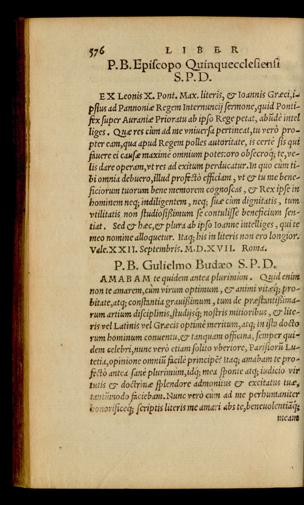 576 LIBER
P. B. Episcopo Quinquecclesiensi
S. P. D.
EX Leonis X. Pont. Max. literis, & Ioannis Græci, i-
psius ad Pannoniæ Regem Internuncij sermone, quid Ponti-
fex super Auraniæ Prioratu ab ipso Rege petat, abūdè intel
liges. Quæ res cùm ad me vniuersa pertineat, tu verò pro-
pter eam, qua apud Regem polles autoritate, is certè sis qui
fauere ei causæ maximè omnium potes: oro obsecroq́; te, ve-
lis dare operam, vt res ad exitum perducatur. In quo cùm ti-
bi omnia debuero, illud profectò efficiam, vt & tu me bene-
ficiorum tuorum bene memorem cognoscas, & Rex ipse in
hominem neq; indiligentem, neq; suæ cùm dignitatis, tum
vtilitatis non studiosissimum se contulisse beneficium sen-
tiat. Sed & hæc, & plura ab ipso Ioanne intelliges, qui te
meo nomine alloquetur. Itaq; his in literis non ero longior.
Vale. XXII. Septembris. M.D.XVII. Roma.
P. B. Gulielmo Budæo S. P. D.
AMABAM te quidem antea plurimùm. Quid enim
non te amarem, cùm virum optimum, & animi vitæq́; pro-
bitate, atq; constantia grauißimum, tum de præstantißima-
rum artium disciplinis, studijsq́; nostris mitioribus, & lite-
ris vel Latinis vel Græcis optimè meritum, atq; in isto docto
rum hominum conuentu, & tanquam officina, semper qui-
dem celebri, nunc verò etiam solito vberiore, Parisiorū Lu-
tetia, opinione omniū facilè principē? Itaq; amabam te pro-
fectò antea sanè plurimùm, idq́; mea sponte atq; iudicio vir
tutis & doctrinæ splendore admonitus & excitatus tuæ,
tantūmodo faciebam. Nunc verò cùm ad me perhumaniter
honorificeq́; scriptis literis me amari abs te, beneuolentiāq́;
meam